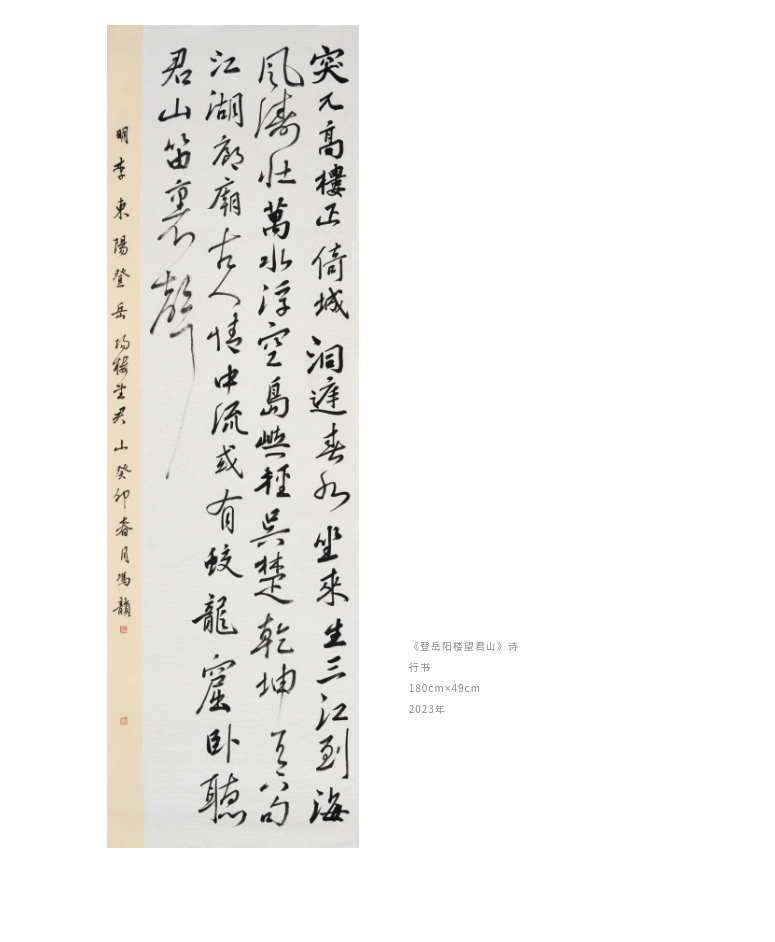 突兀高樓正倚城洞庭春水坐來生三江到海
風濤壯萬水浮空島嶼輕吳楚乾坤天下句
江湖廊廟古人情中流或有蛟龍窟臥聽
君山笛裏聲
明李東陽登岳陽樓望君山癸卯春月馮
《登岳阳楼望君山》诗
行书
180cm×49cm
2023年